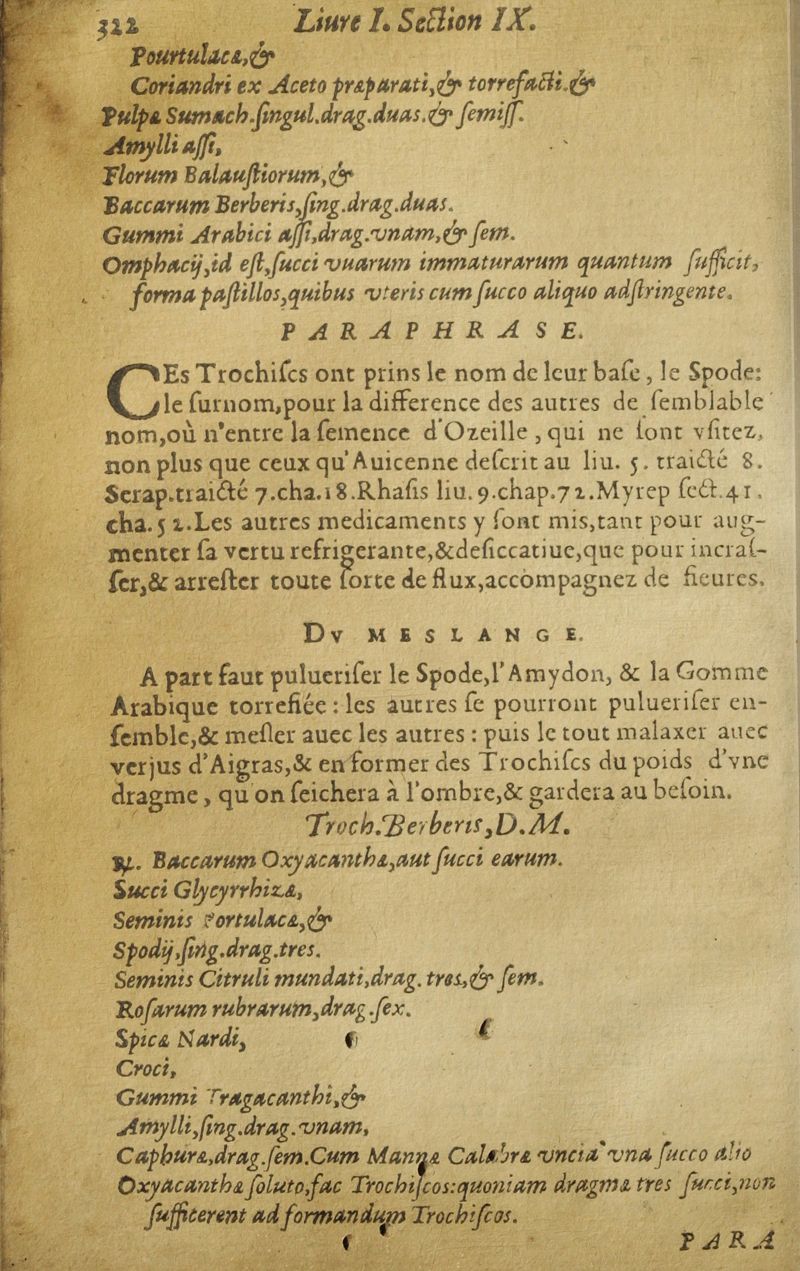 322 Liure I. Section IX.
Pourtulacæ,&
Coriandri ex Aceto præparati,& torrefacti.&
Pulpæ Sumach.ſingul.drag.duas.& ſemiſſ.
Amylli aſſi,
Florum Balauſtiorum,&
Baccarum Berberis,ſing.drag.duas.
Gummi Arabici aſſi,drag.vnam,& ſem.
Omphacij,id eſt,ſucci vuarum immaturarum quantum ſufficit,
forma paſtillos,quibus vteris cum ſucco aliquo adſtringente.
PARAPHRASE.
CEs Trochiſcs ont prins le nom de leur baſe, le Spode:
le ſurnom,pour la difference des autres de ſemblable
nom,où n'entre la ſemence d'Ozeille, qui ne ſont vſitez,
non plus que ceux qu'Auicenne deſcrit au liu. 5. traicté 8.
Serap.traicté 7.cha.18.Rhaſis liu.9.chap.72.Myrep ſect.41.
cha.52.Les autres medicaments y ſont mis,tant pour aug-
menter ſa vertu refrigerante,&deſiccatiue,que pour incraſ-
ſer,& arreſter toute ſorte de flux,accompagnez de fieures.
DV MESLANGE.
A part faut puluerifer le Spode,l'Amydon, & la Gomme
Arabique torrefiée : les autres ſe pourront pulueriſer en-
ſemble,& meſler auec les autres : puis le tout malaxer auec
verjus d'Aigras,& en former des Trochiſcs du poids d'vne
dragme, qu'on ſeichera à l'ombre,& gardera au beſoin.
Troch.Berberis,D.M.
℞. Baccarum Oxyacanthæ,aut ſucci earum.
Succi Glycyrrhizæ,
Seminis Portulacæ,&
Spodij,ſing.drag.tres.
Seminis Citruli mundati,drag. tres,& ſem.
Roſarum rubrarum,drag.ſex.
Spicæ Nardi,
Croci,
Gummi Tragacanthi,&
Amylli,ſing.drag.vnam,
Caphuræ,drag.ſem.Cum Mannæ Calabræ vncia vna ſucco alio
Oxyacanthæ ſoluto,fac Trochiſcos:quoniam dragmæ tres ſucci,non
ſufficerent ad formandum Trochiſcos.
PARA